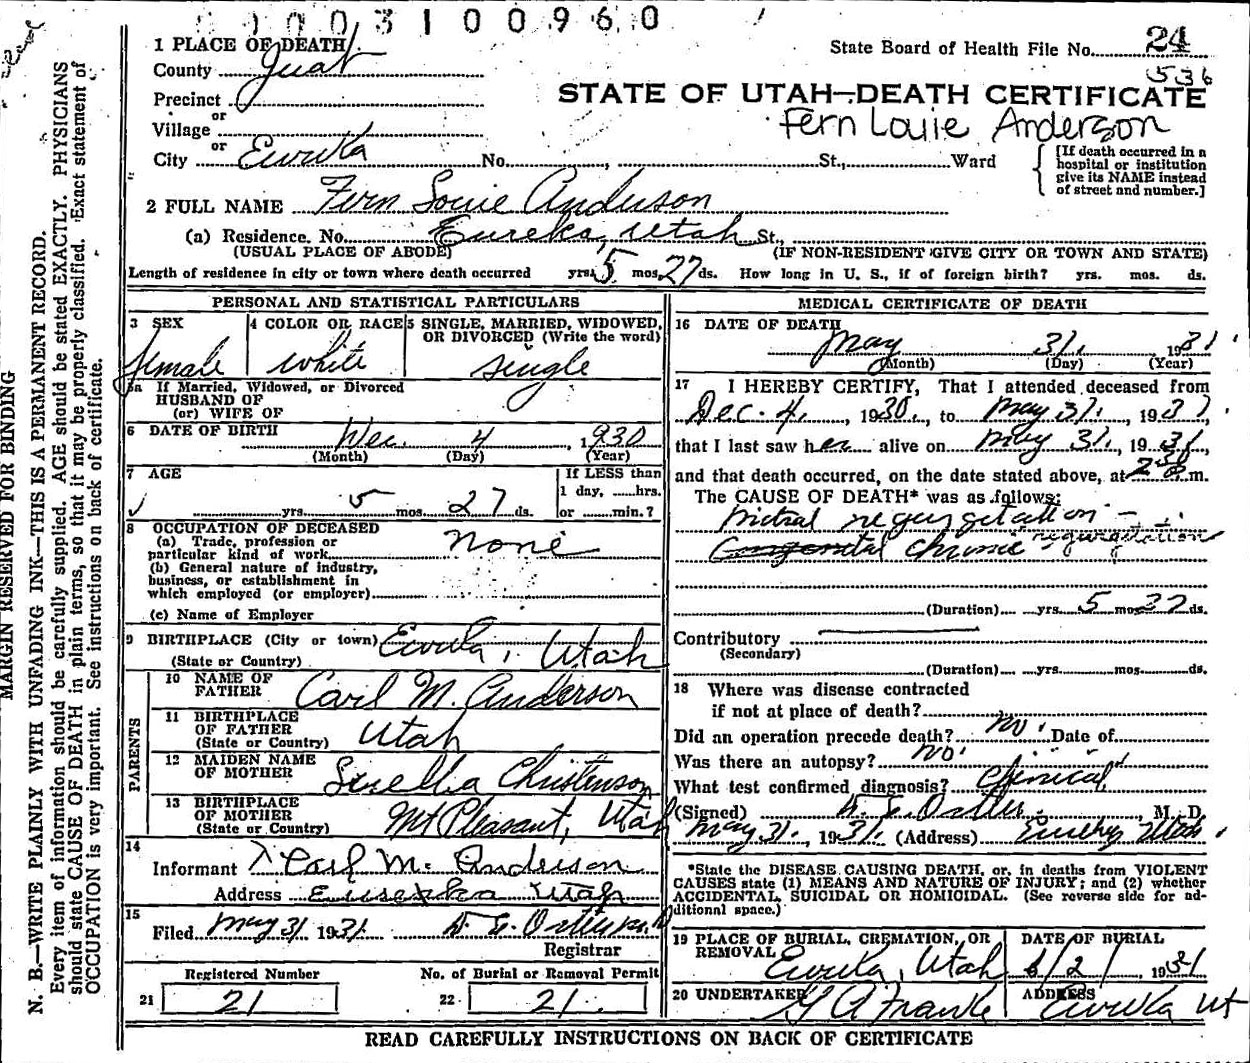 0 1 0 0 3 1 0 0 9 6 0
1 PLACE OF DEATH
State Board of Health File No. 24
County Juab
536
Precinct
STATE OF UTAH—DEATH CERTIFICATE
or
Village
Fern Louie Anderson
or
City Eureka No. , St., Ward
[If death occurred in a
hospital or institution
give its NAME instead
of street and number.]
2 FULL NAME Fern Louie Anderson
(a) Residence. No. Eureka, Utah St.,
(USUAL PLACE OF ABODE) (IF NON-RESIDENT GIVE CITY OR TOWN AND STATE)
Length of residence in city or town where death occurred yrs. 5 mos. 27 ds. How long in U. S., if of foreign birth? yrs. mos. ds.
PERSONAL AND STATISTICAL PARTICULARS
3 SEX
female
4 COLOR OR RACE
white
5 SINGLE, MARRIED, WIDOWED,
OR DIVORCED (Write the word)
single
5a If Married, Widowed, or Divorced
HUSBAND OF
(or) WIFE OF
6 DATE OF BIRTH Dec. 4 1930
(Month) (Day) (Year)
7 AGE
yrs. 5 mos. 27 ds.
If LESS than
1 day, ......hrs.
or ......min.?
8 OCCUPATION OF DECEASED
(a) Trade, profession or
particular kind of work none
(b) General nature of industry,
business, or establishment in
which employed (or employer)
(c) Name of Employer
9 BIRTHPLACE (City or town) Eureka, Utah
(State or Country)
PARENTS
10 NAME OF
FATHER Carl M. Anderson
11 BIRTHPLACE
OF FATHER
(State or Country) Utah
12 MAIDEN NAME
OF MOTHER Luella Christenson
13 BIRTHPLACE
OF MOTHER
(State or Country) Mt Pleasant, Utah
14
Informant Carl M. Anderson
Address Eureka Utah
15
Filed May 31 1931.
Registrar
Registered Number
21 21
No. of Burial or Removal Permit
22 21
MEDICAL CERTIFICATE OF DEATH
16 DATE OF DEATH
May 31. 1931
(Month) (Day) (Year)
17 I HEREBY CERTIFY, That I attended deceased from
Dec. 4, 1930, to May 31, 1931,
that I last saw her alive on May 31, 1931,
and that death occurred, on the date stated above, at m.
The CAUSE OF DEATH* was as follows:
Mitral regurgitation
Congenital Chronic regurgitation
(Duration) yrs. 5 mos 27 ds.
Contributory
(Secondary)
(Duration) yrs. mos. ds.
18 Where was disease contracted
if not at place of death?
Did an operation precede death? no. Date of
Was there an autopsy? no.
What test confirmed diagnosis? Clinical
(Signed) M. D.
May 31, 1931. (Address) Eureka Utah
*State the DISEASE CAUSING DEATH, or, in deaths from VIOLENT
CAUSES state (1) MEANS AND NATURE OF INJURY; and (2) whether
ACCIDENTAL, SUICIDAL OR HOMICIDAL. (See reverse side for ad-
ditional space.)
19 PLACE OF BURIAL, CREMATION, OR
REMOVAL Eureka, Utah
DATE OF BURIAL
6/2/, 1931
20 UNDERTAKER G A Franke
ADDRESS Eureka Ut
READ CAREFULLY INSTRUCTIONS ON BACK OF CERTIFICATE
MARGIN RESERVED FOR BINDING
N. B.—WRITE PLAINLY WITH UNFADING INK—THIS IS A PERMANENT RECORD.
Every item of information should be carefully supplied. AGE should be stated EXACTLY. PHYSICIANS
should state CAUSE OF DEATH in plain terms, so that it may be properly classified. Exact statement of
OCCUPATION is very important. See instructions on back of certificate.